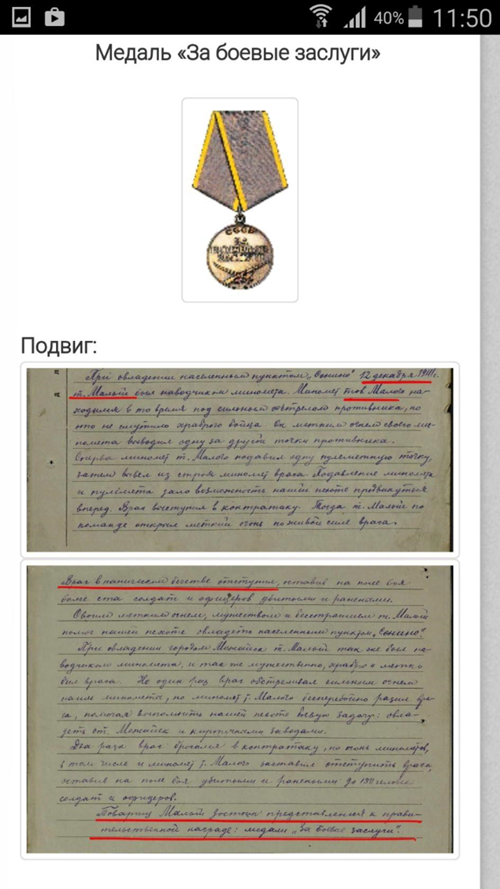 40% 11:50
Медаль «За боевые заслуги»
СССР
Подвиг:
При овладении населенным пунктом "Сонино" 12 декабря 1941г.
т. Малый был наводчиком миномета. Миномет тов Малого на-
ходился в то время под сильным обстрелом противника, но
это не смутило храброго бойца он метким огнем своего ми-
номета выводил одну за другой точки противника.
миномет т. Малого подавил одну пулеметную точку,
затем вывел из строя миномет врага. Подавление миномета
и пулемета дало возможность нашей пехоте продвинуться
вперед. Враг выступил в контратаку. Тогда т. Малый по
команде открыл меткий огонь по живой силе врага.
Враг в паническом бегстве отступил, оставив на поле боя
более ста солдат и офицеров убитыми и ранеными.
Своим метким огнем, мужеством и бесстрашием т. Малый
помог нашей пехоте овладеть населенным пунктом "Сонино"
При овладении городом Можайск т. Малый так же был на-
водчиком миномета, и так же мужественно, храбро и метко
бил врага. Не один раз враг обстреливал сильным огнем
наши минометы, но миномет т. Малого бесперебойно разил вра-
га, помогая выполнить нашей пехоте боевую задачу: овла-
деть ст. Можайск и кирпичными заводами.
Два раза враг бросался в контратаку, но огонь минометов,
в том числе и миномет т. Малого заставил отступить врага,
оставив на поле боя убитыми и ранеными до человек
солдат и офицеров.
Товарищ Малый достоин представления к прави-
тельственной награде: медали "За боевые заслуги".